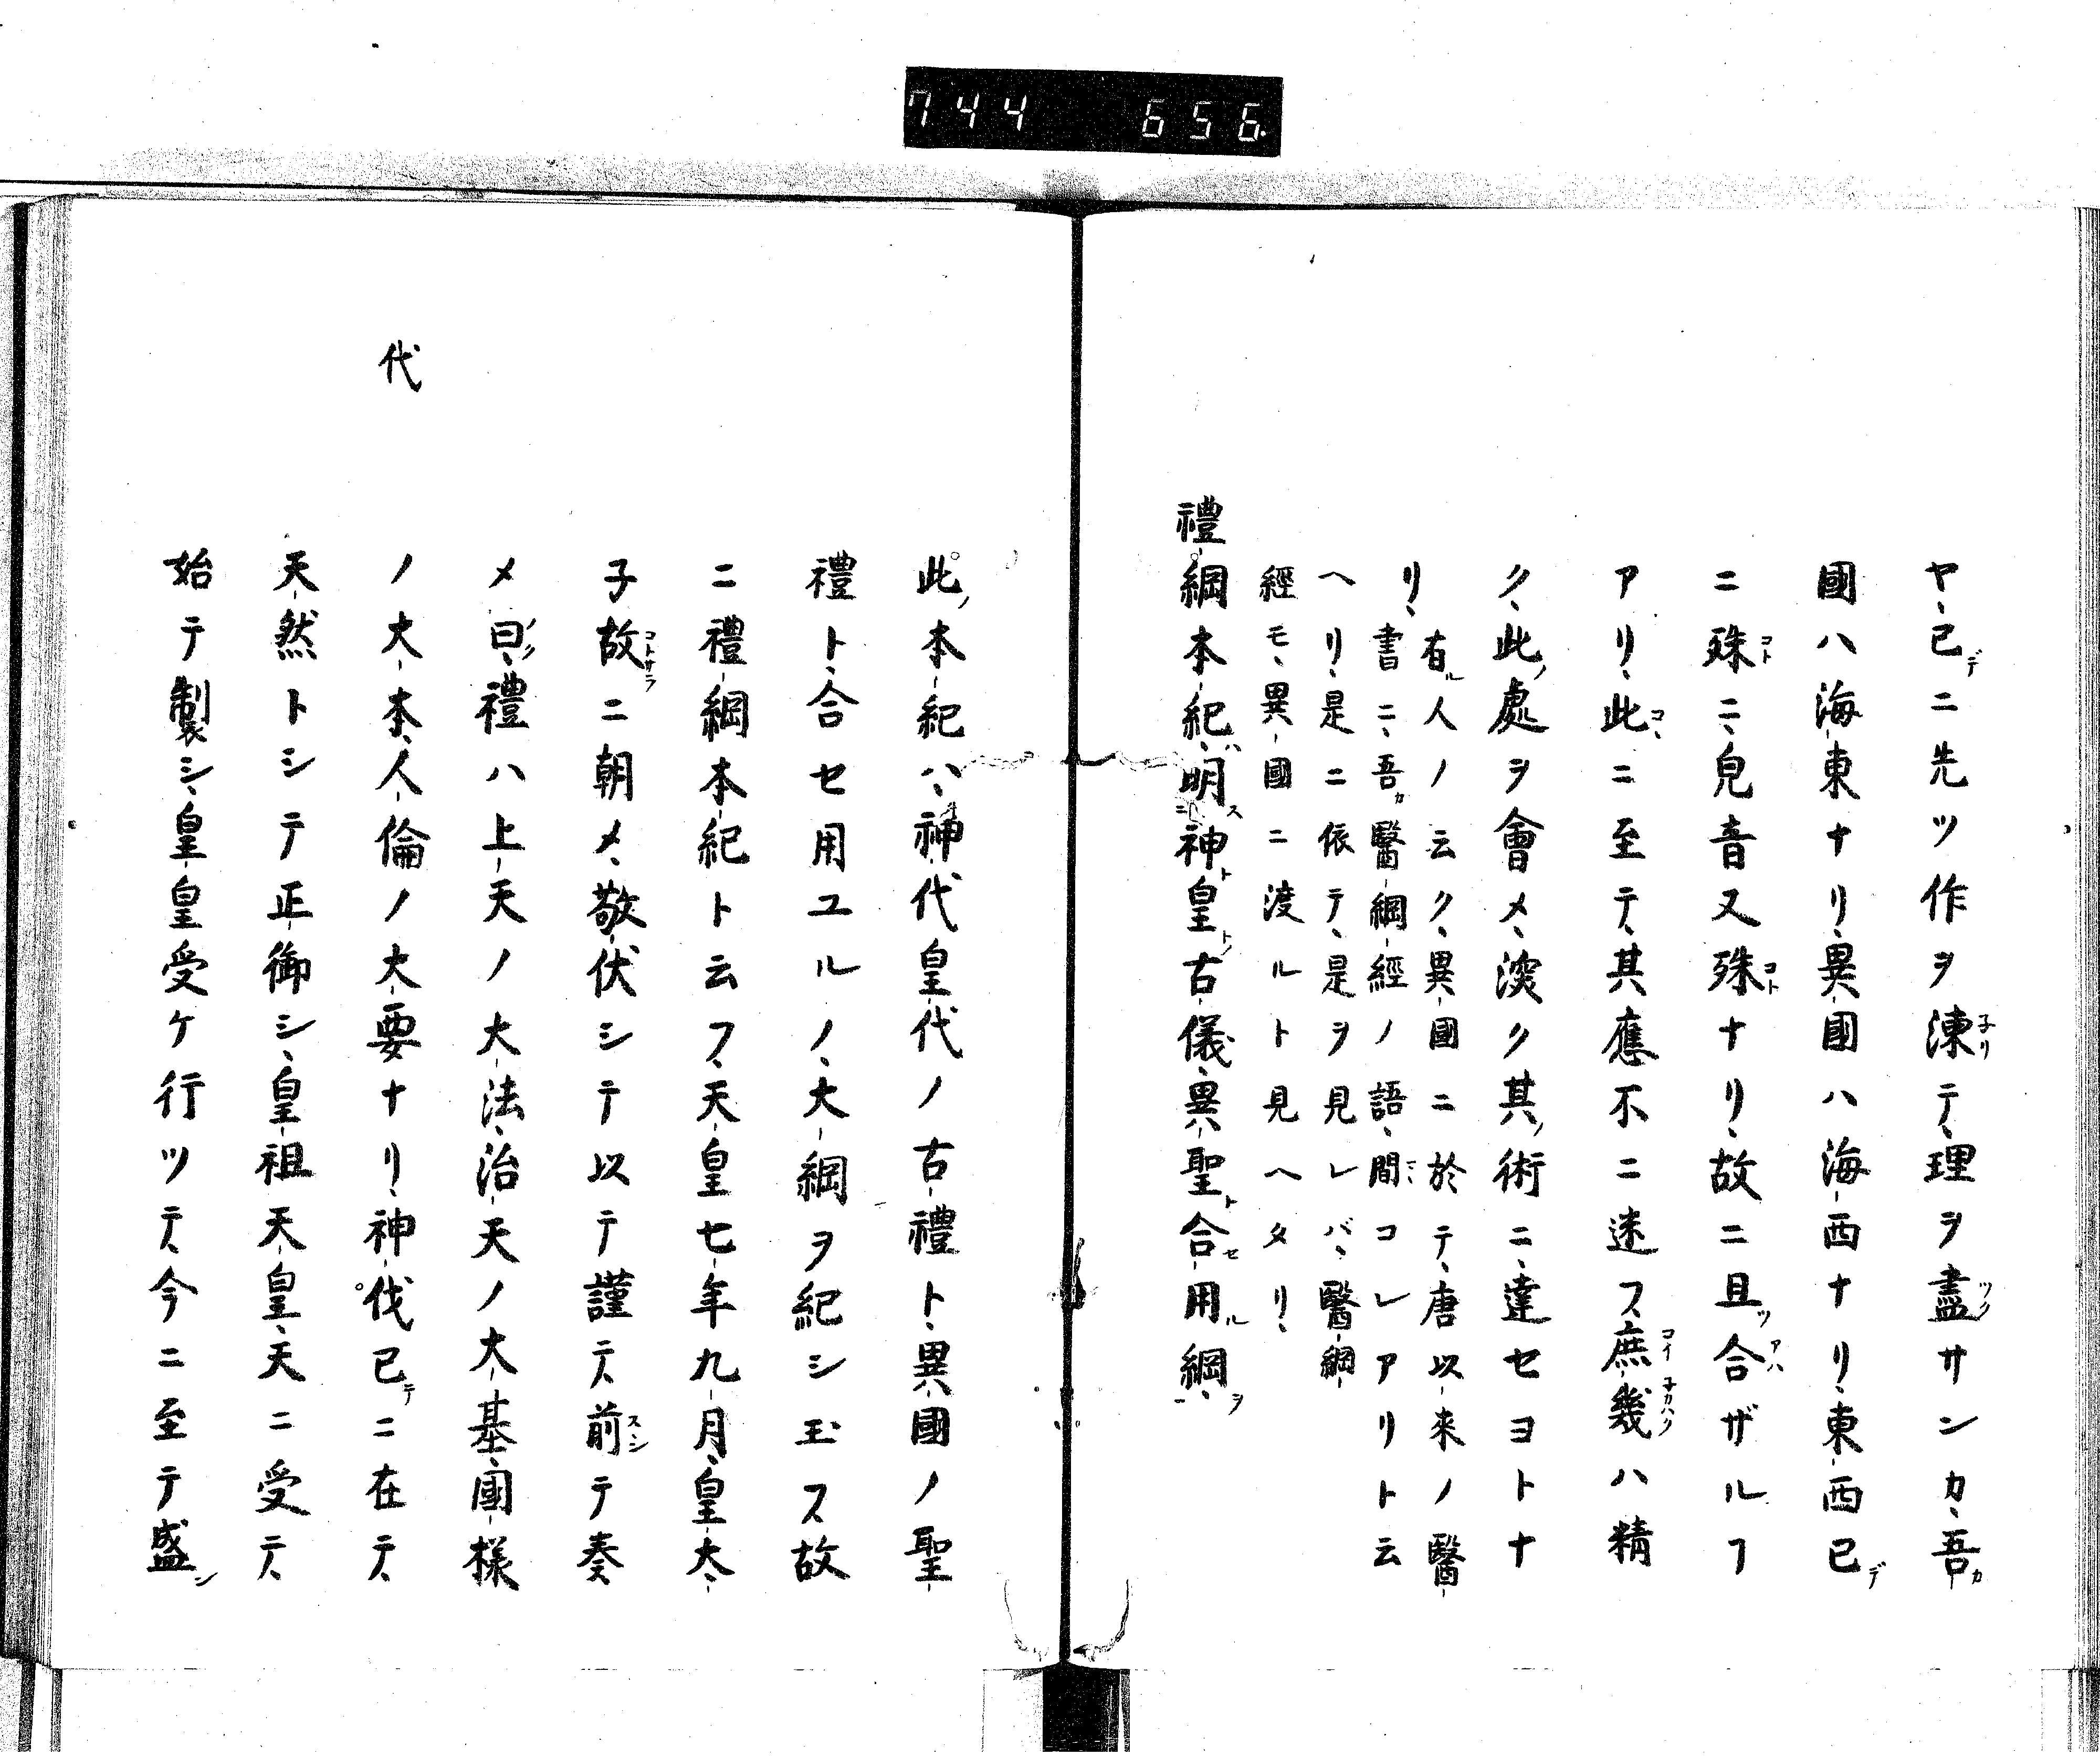 744 656
ヤ、已ニ先ツ作ヲ湅テ、理ヲ盡サンカ、吾
國ハ海東ナリ、異國ハ海西ナリ、東西已
ニ殊ニ、皃音又殊ナリ、故ニ且合ザルヿ
アリ、此ニ至テ、其應不ニ迷フ、庶幾ハ精
ク、此處ヲ會メ、深ク其術ニ、達セヨトナ
リ、
有人ノ云ク、異國ニ於テ、唐以来ノ醫
書ニ、吾醫綱經ノ語、間コレアリト云
ヘリ、是ニ依テ、是ヲ見レバ、醫綱
經モ、異國ニ渡ルト見ヘタリ、
禮綱本紀、明神皇古儀、異聖合用綱、
此本紀ハ、神代皇代ノ古禮ト、異國ノ聖
禮ト、合セ用ユルノ、大綱ヲ紀シ玉ス故
ニ禮綱本紀ト云フ、天皇七年九月、皇太
子故ニ朝メ、敬伏シテ以テ謹テ、前テ奏
メ曰、禮ハ上天ノ大法、治天ノ大基、國様
ノ大本、人倫ノ大要ナリ、神伐已ニ在テ、
代
天然トシテ正御シ、皇祖天皇、天ニ受テ、
始テ製シ、皇皇受ケ行ツテ、今ニ至テ盛